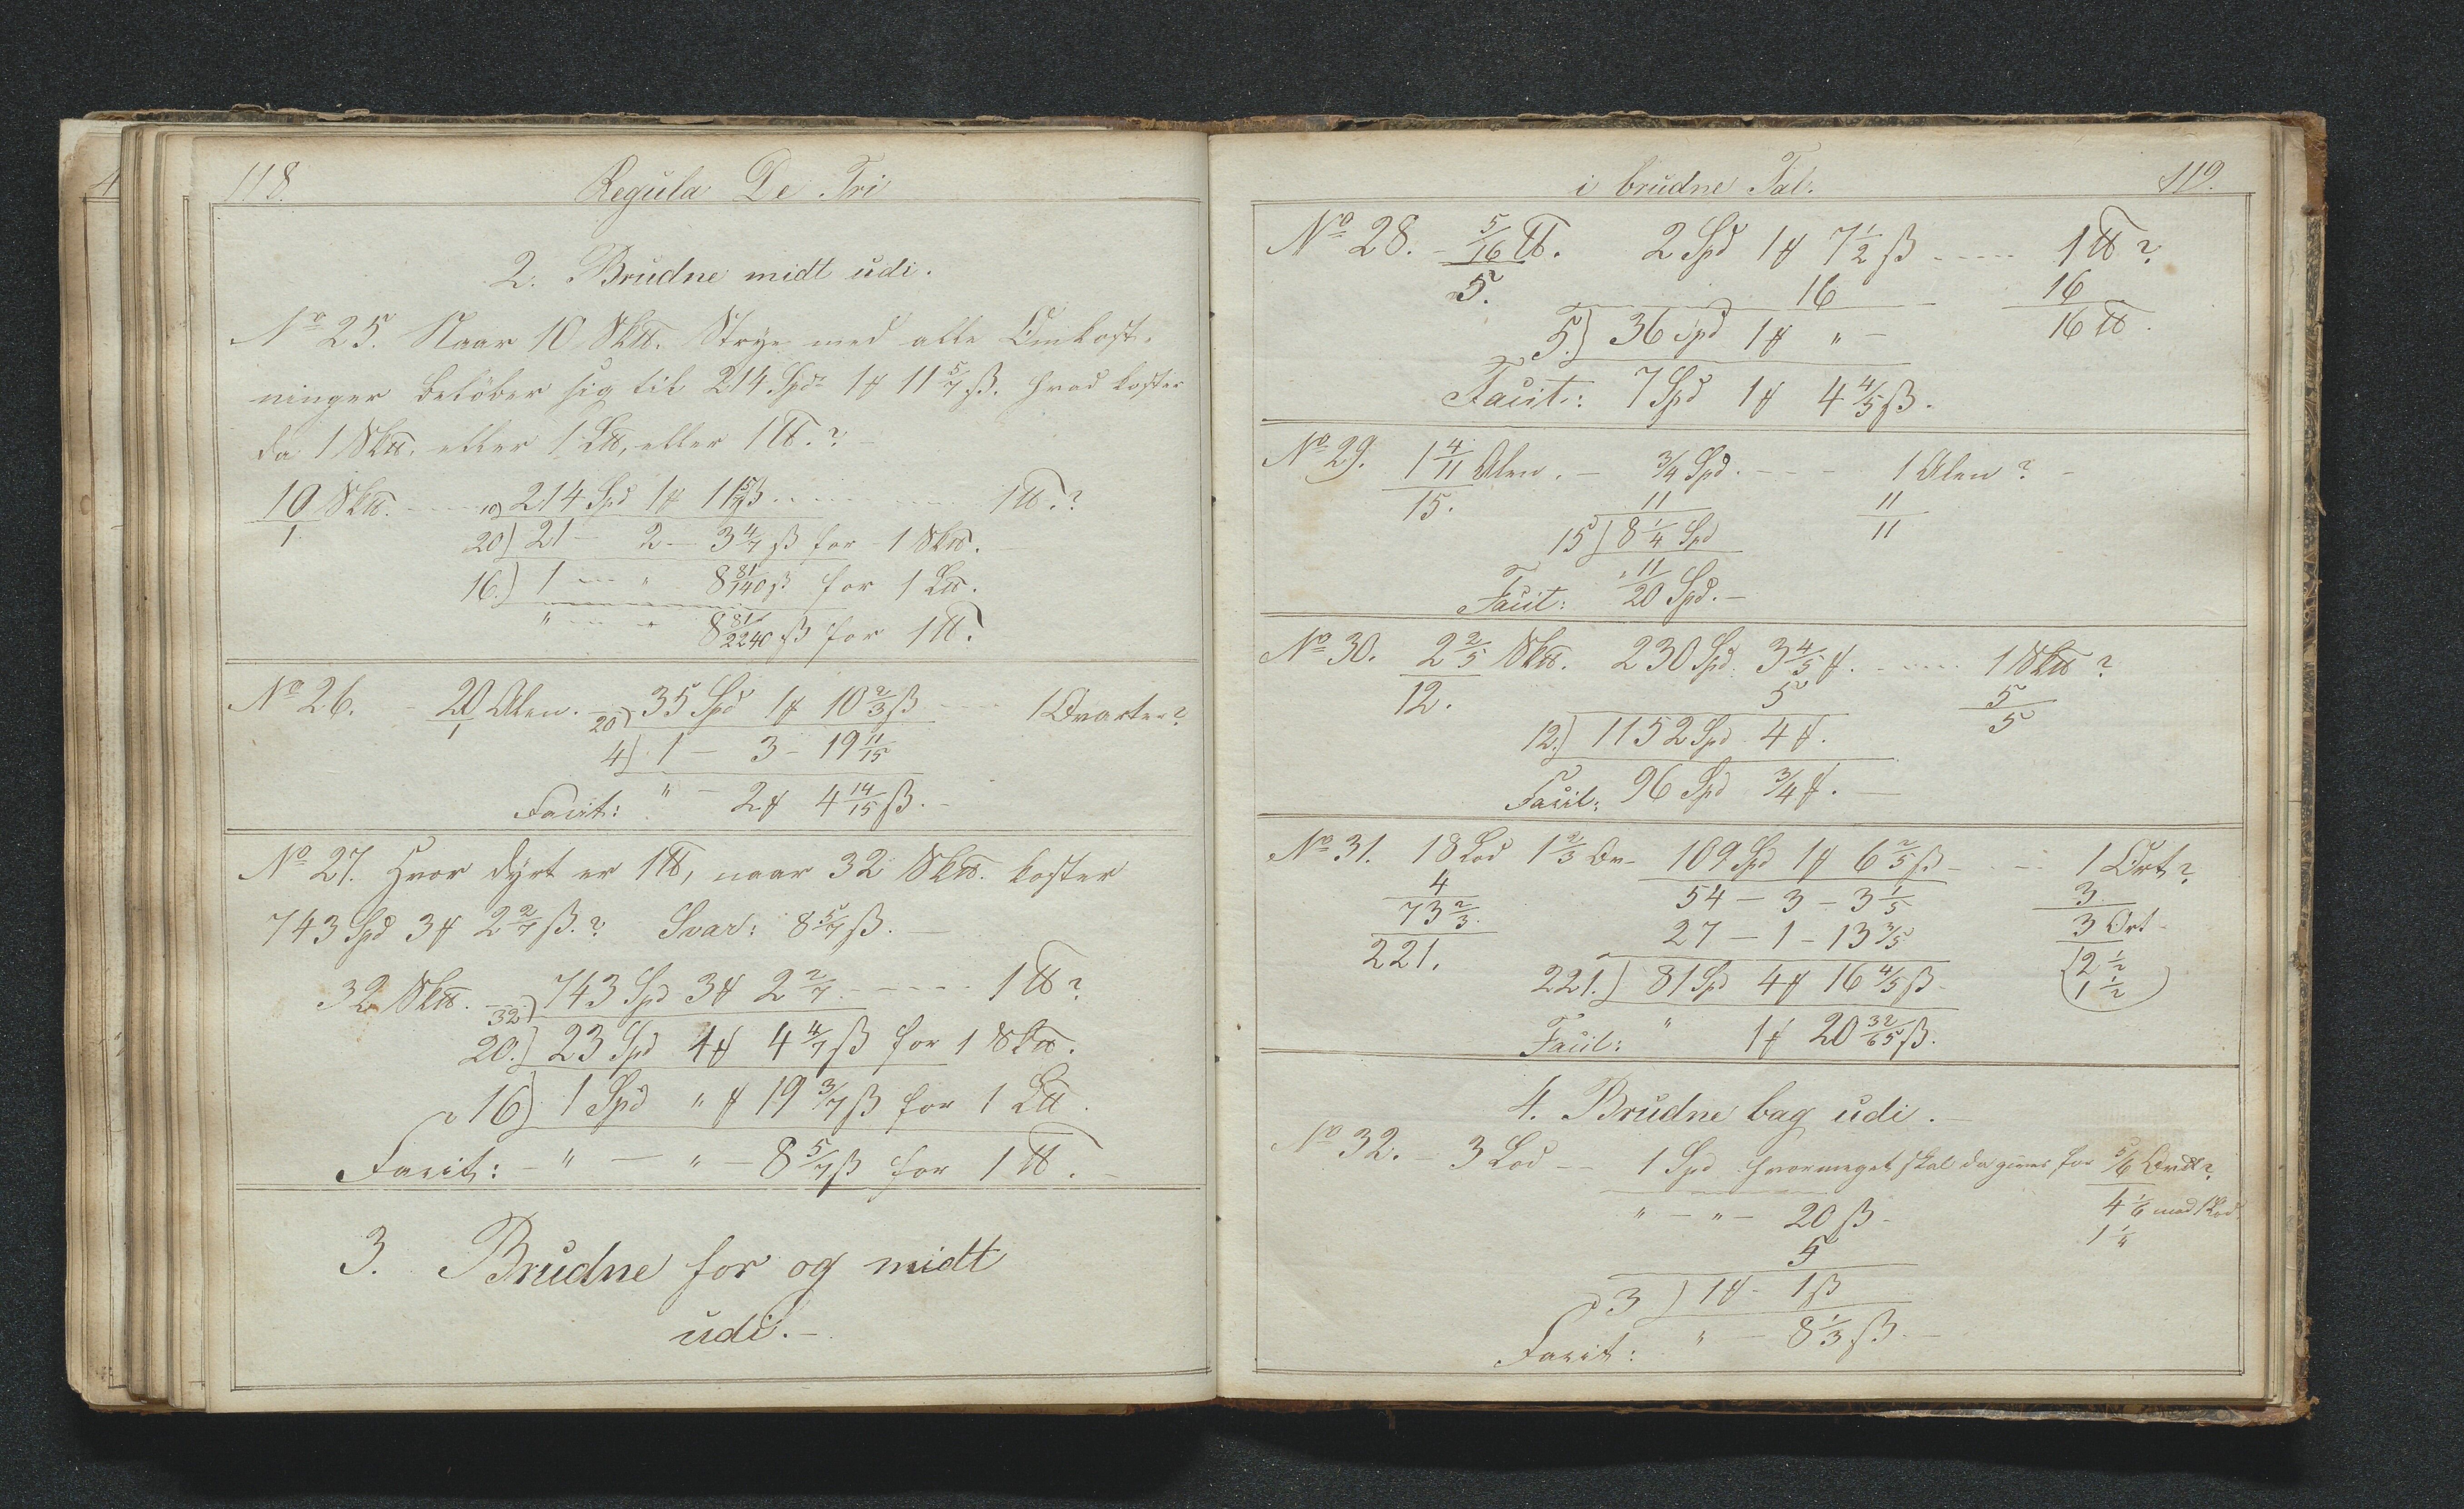 118.
Regula De Tri
2. Brudne midt udi.
No 25. Naar 10 Sk℔. Strye med alle Omkost-
ninger beløber sig til 214 Spdr 1 ꝟ 11 5/7 ß. hvad koster
da 1 Sk℔. eller 1 L℔, eller 1 ℔.?
10 Sk℔. 10) 214 Spd 1 ꝟ 11 5/7 ß 1 ℔.?
1 20) 21 – 2 – 3 4/7 ß for 1 Sk℔.
16.) 1 – " 8 81/140 ß for 1 L℔.
" – " 8 81/2240 ß for 1 ℔.
No 26. 20 Alen. 20) 35 Spd 1 ꝟ 10 2/3 ß 1 Qvarter?
1 4) 1 – 3 – 19 11/15
Facit: " – 2 ꝟ 4 14/15 ß.
No 27. Hvor dyrt er 1 ℔, naar 32 Sk℔. koster
743 Spd 3 ꝟ 2 2/7 ß.? Svar: 8 5/7 ß.
32 Sk℔. 32) 743 Spd 3 ꝟ 2 2/7 1 ℔?
20.) 23 Spd 1 ꝟ 4 4/7 ß for 1 Sk℔.
16) 1 Spd " ꝟ 19 3/7 ß for 1 L℔.
Facit: – " – " – 8 5/7 ß for 1 ℔.
3. Brudne for og midt
udi.
i brudne Tal.
119.
No 28. 5/16 ℔. 2 Spd 1 ꝟ 7 1/2 ß 1 ℔?
5. 16 16
5.) 36 Spd 1 ꝟ " – 16 ℔.
Facit: 7 Spd 1 ꝟ 4 4/5 ß.
No 29. 1 4/11 Alen. – 3/4 Spd. 1 Alen?
15. 11 11
15) 8 1/4 Spd 11
Facit: 11/20 Spd.
No 30. 2 2/5 Sk℔. 230 Spd. 3 4/5 ꝟ. 1 Sk℔?
12. 5 5
12.) 1152 Spd 4 ꝟ. 5
Facit: 96 Spd 3/4 ꝟ.
No 31. 18 Lod 1 2/3 Qv. 109 Spd 1 ꝟ 6 2/5 ß 1 Ort?
4 54 – 3 – 3 1/5 3
73 2/3. 27 – 1 – 13 3/5 3 Ort
221. 221.) 81 Spd 4 ꝟ 16 4/5 ß (2 1/2
1 1/2)
Facit: " 1 ꝟ 20 32/65 ß.
4. Brudne bag udi.
No 32. – 3 Lod – 1 Spd hvormeget skal da gives for 5/6 Qvt?
" – " – 20 ß 4 1/6 mod 1 Lod
5 1 1/4
3) 1 ꝟ – 1 ß
Facit: " – 8 1/3 ß.